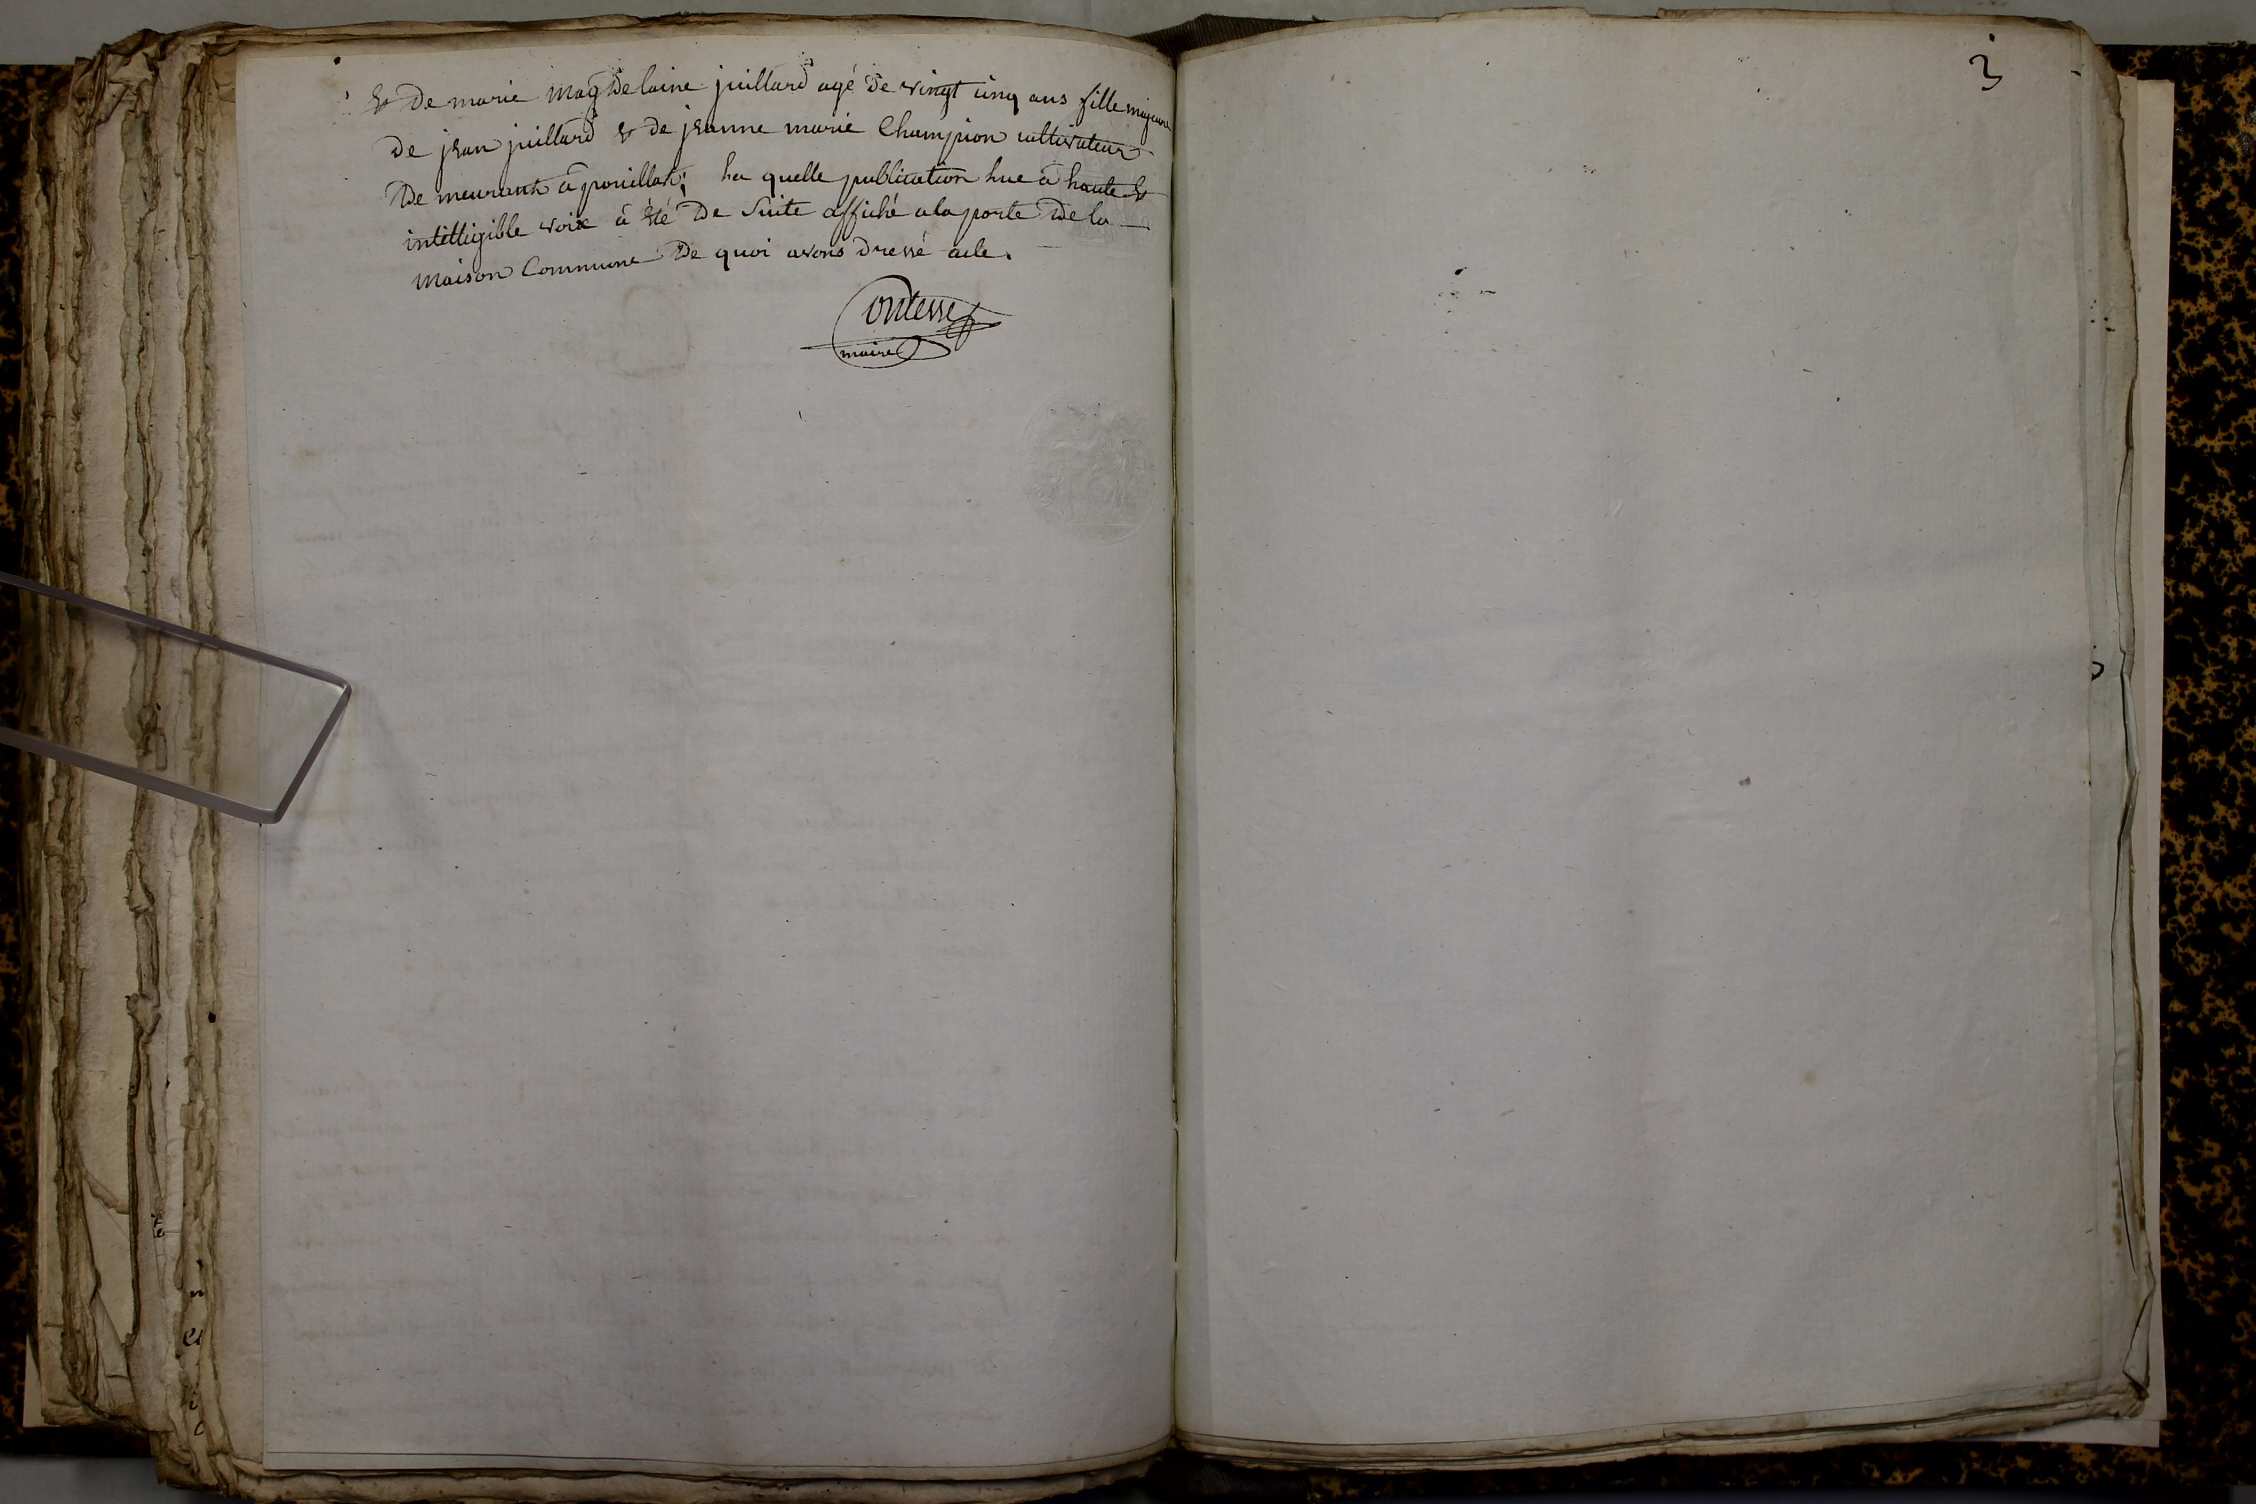 & De marie Magdelaine juillard agé de vingt cinq ans fille majeure
de jean juillard & de jeanne marie Champion cultivateur
De meurant à pouillat; la quelle publication lue à haute &
intelligible voix à été De Suite affiché a la porte De la
maison Commune De quoi avons dressé acte.
Contesse
maire
3